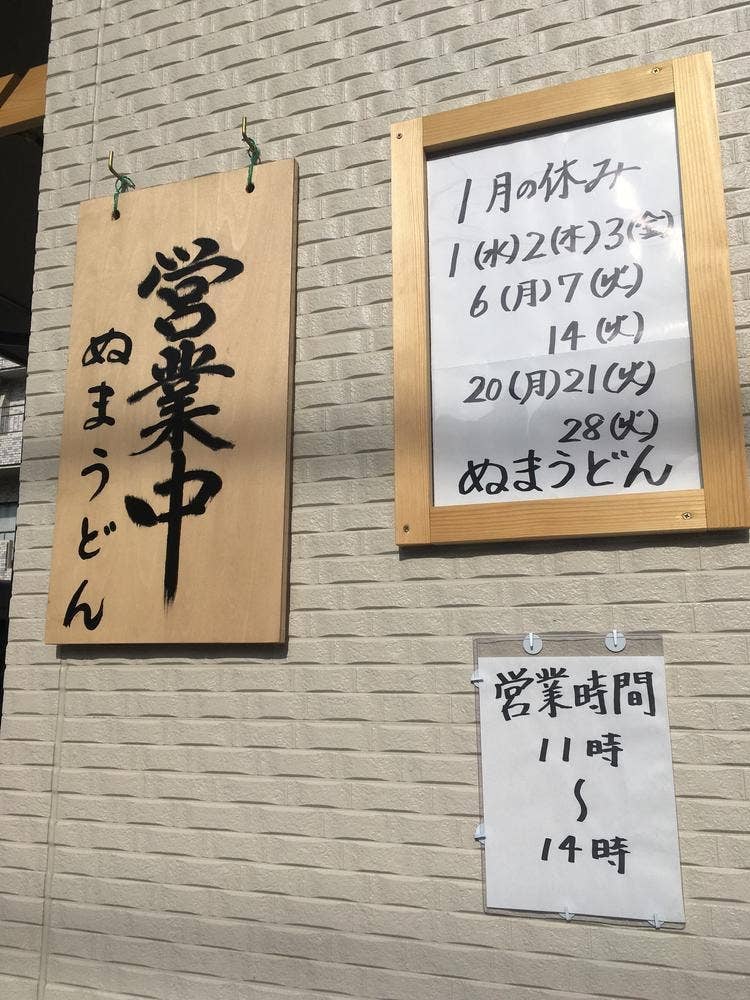 営業中
ぬまうどん
1月の休み
1(水)2(木)3(金)
6(月)7(火)
14(火)
20(月)21(火)
28(火)
ぬまうどん
営業時間
11時
〜
14時